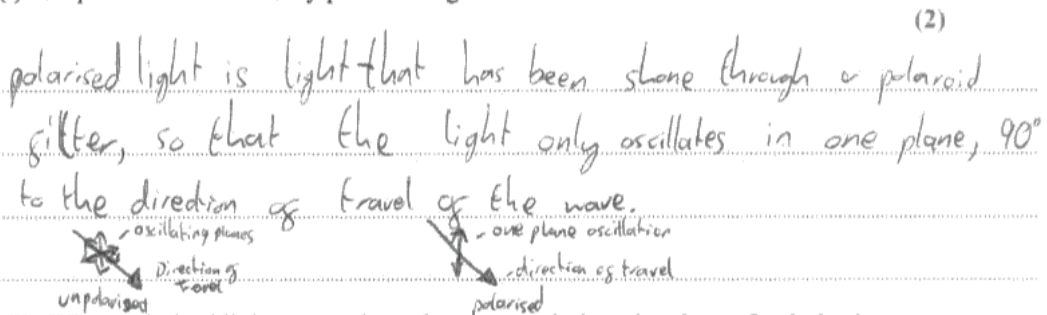 (2)
polarised light is light that has been shone through a polaroid
filter, so that the light only oscillates in one plane, 90°
to the direction of travel of the wave.
oscillating planes
Direction of
travel
unpolarised
one plane oscillation
direction of travel
polarised